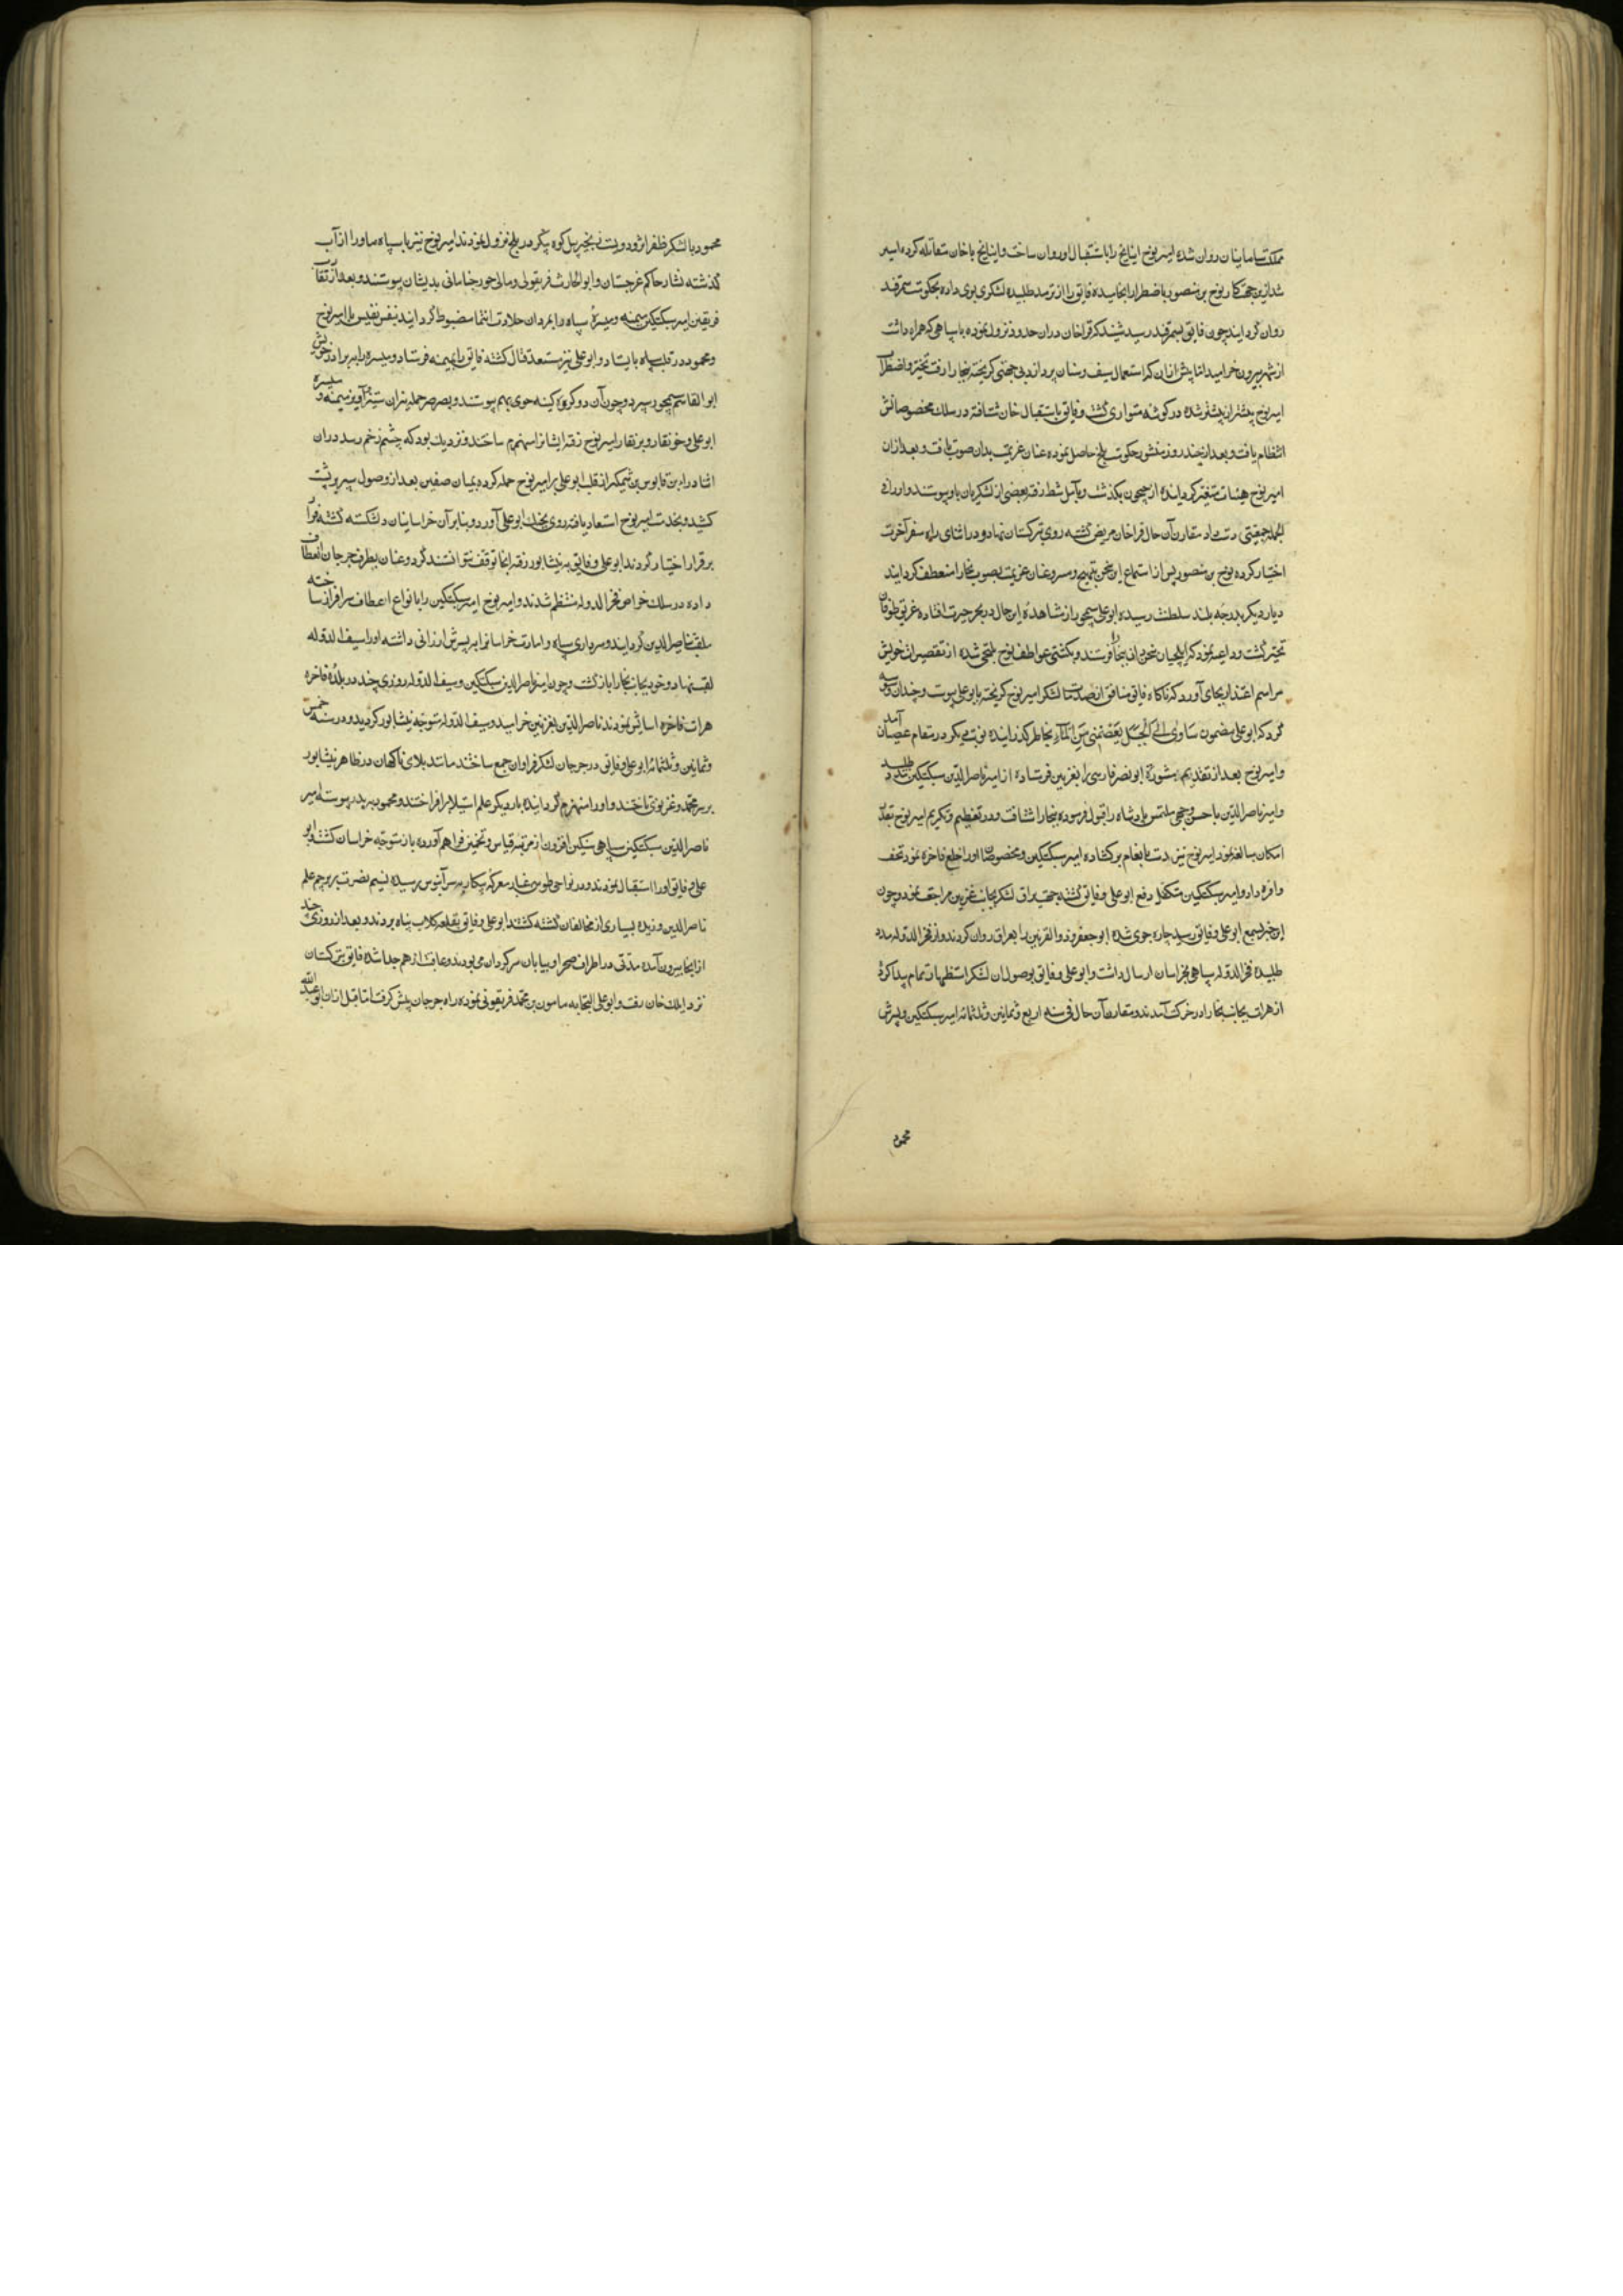 مملکت سامانیان روان شده امیر نوح اینانج را باستقبال او روان ساخت و اینانج با خان مقاتله کرده اسیر
شد ازین جهت کار نوح بن منصور باضطرار انجامیده فایق را از ترمد طلبیده لشکری بوی داده بحکومت سمرقند
روان گردانید چون فایق بسمرقند رسید شنید که قراخان دران حدود نزول نموده با سپاهی که همراه داشت
از شهر بیرون خرامید اما پیش ازان که استعمال سیف و سنان پردازد بی جهتی گریخته ببخارا رفت تحیر و اضطراب
امیر نوح بیشتر از پیشتر شده در گوشه متواری گشت و فایق باستقبال خان شتافته در سلک مخصوصانش
انتظام یافت و بعد از چند روز منشور حکومت بلخ حاصل نموده عنان عزیمت بدان صوب تافت و بعد ازان
امیر نوح هیئات متغیر گردانیده از جیحون بگذشت و بآمل شط رفته بعضی از لشکریان باو پیوستند و او را فی
الجمله جمعیتی دست داد مقارن آن حال قراخان مریض گشته روی بترکستان نهاد و در اثنای راه سفر آخرت
اختیار کرده نوح بن منصور پس از استماع این سخن مبتهج و مسرور عنان عزیمت بصوب بخارا منعطف گردانید
دیار دیگر بدرجه بلند سلطنت رسیده ابو علی سیمجور از مشاهده این حال در بحر حیرت افتاده غریق طوفان
تحیر گشت و داعیه نمود که ایلچیان سخن دان ببخارا فرستد و بکشتی عواطف نوح ملتجی شده از تقصیرات خویش
مراسم اعتذار بجای آورد که ناگاه فایق منافق از لشکر امیر نوح گریخته بابو علی پیوست و چندان وسوسه
کرد که ابو علی مضمون ساوی الی الجبل یعصمنی من الماء بخاطر گذرانیده نوبت دیگر در مقام عصیان آمد
و امیر نوح بعد از تقدیم مشورة ابو نصر فارسی را بغزنین فرستاده از امیر ناصر الدین سبکتکین مدد طلبید
و امیر ناصر الدین باحسن وجهی ملتمس پادشاه را قبول فرموده ببخارا شتافت و در تعظیم و تکریم امیر نوح بقدر
امکان مبالغه نمود امیر نوح نیز دست بانعام برگشاده امیر سبکتکین و مخصوصان او را خلع فاخره نمود تحف
وافره داد و امیر سبکتکین متکفل دفع ابو علی و فایق گشته جهت یراق لشکر بجانب غزنین مراجعت نمود و چون
این خبر بسمع ابو علی و فایق رسید چاره جوی شده ابو جعفر ذو القرنین را بعراق روان کردند و از فخر الدوله مدد
طلبیده فخر الدوله سپاهی بخراسان ارسال داشت و ابو علی و فایق بوصول آن لشکر استظهار تمام پیدا کرده
از هرات بجانب بخارا در حرکت آمدند و مقارن آن حال فی سنه اربع و ثمانین و ثلثمائه امیر سبکتکین و پسرش
محمود
محمود با لشکر ظفر اثر و دویست زنجیر پیل کوه پیکر در بلخ نزول نمودند امیر نوح نیز با سپاه ماورا از آب
گذشته نشار حاکم غرجستان و ابو الحارث فریقونی و والی جورجانانی بدیشان پیوستند و بعد از تقارب
فریقین امیر سبکتکین میمنه و میسره سپاه را بمردان جلادت انتما مضبوط گردانید بنفس نفیس با امیر نوح
و محمود در قلب سپاه بایستاد و ابو علی نیز مستعد قتال گشته فایق را بمیمنه فرستاد و میسره را ببرادر خویش
ابو القاسم سیمجور سپرد و چون آن دو گروه کینه جوی بهم پیوستند و بصرصر حمله نیران ستیز و آویز میمنه و میسره
ابو علی و جونقار و برنقار امیر نوح رفته ایشانرا منهزم ساختند و نزدیک بود که چشم زخم رسد دران
اثنا دارا بن قابوس بن وشمگیر از قلب ابو علی بر امیر نوح حمله کرده بمیان صفین بعد از وصول سپر بر پشت
کشید و بخدمت امیر نوح استسعاد یافته روی بجنگ ابو علی آورد و بنابرآن خراسانیان دلشکسته گشته فرار
برقرار اختیار کردند ابو علی و فایق به نیشابور رفته انجا توقف نتوانستند کرد و عنان بطرف جرجان انعطاف
داده در سلک خواص فخر الدوله منتظم شدند و امیر نوح امیر سبکتکین را بانواع اعطاف سرافراز ساخته
ملقب بناصر الدین گردانید و سرداری سپاه و امارت خراسانرا بپسرش ارزانی داشته او را سیف الدوله
لقب نهاد و خود بجانب بخارا بازگشت و چون امیر ناصر الدین سبکتکین و سیف الدوله روزی چند در بلدهٔ فاخره
هرات فاخره اسایش نمودند ناصر الدین بغزنین خرامید و سیف الدوله متوجه نیشابور گردید و در سنه خمس
و ثمانین و ثلثمائه ابو علی و فایق در جرجان لشکر فراوان جمع ساختند مانند بلای ناگهان در ظاهر نیشابور
بر سر محمود غزنوی تاختند و او را منهزم گردانیده بار دیگر علم استیلا برافراختند و محمود بپدر پیوسته امیر
ناصر الدین سبکتکین سپاهی سنگین افزون از مرتبه قیاس و تخمین فراهم آورده باز متوجه خراسان گشته ابو
علی و فایق او را استقبال نمودند و در نواحی طوس غبار معرکه پیکار بر سر آبنوس رسیده نسیم نصرت بر پرچم علم
ناصر الدین وزیده بسیاری از مخالفان کشته گشتند ابو علی و فایق بقلعه کلات پناه بردند و بعد از روزی چند
از انجا بیرون آمده مدتی در اطراف صحرا و بیابان سرگردان می بودند و عاقبت از هم جدا شده فایق بترکستان
نزد ایلک خان رفت و ابو علی التجا به مامون بن محمد فریقونی نموده راه جرجان پیش گرفت اما قبل ازان ابو عبد الله